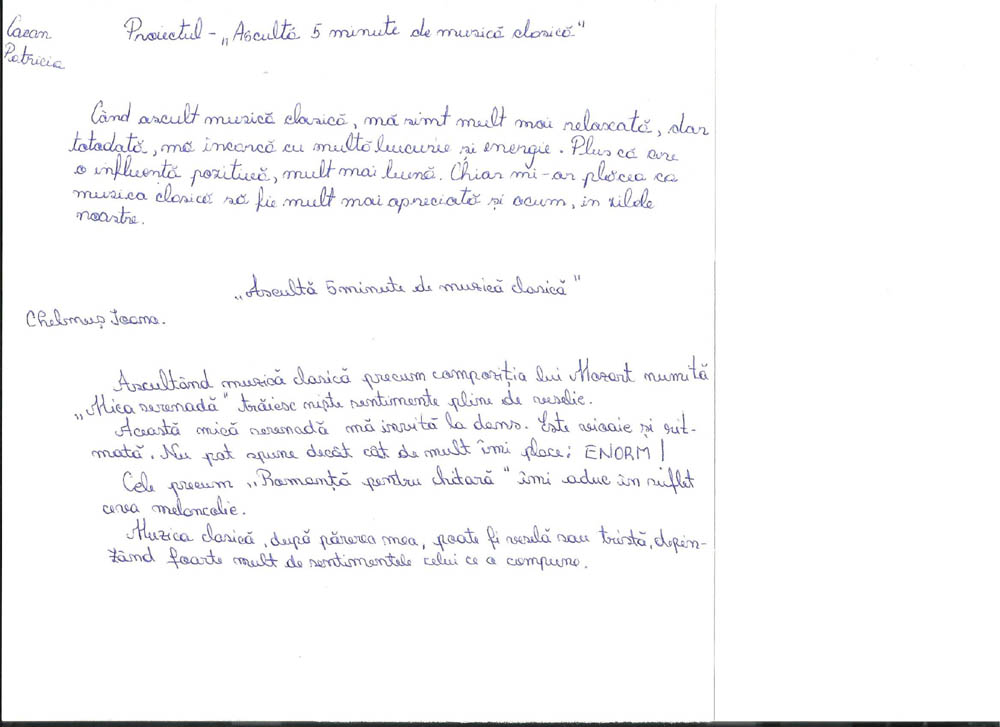 Proiectul - „Ascultă 5 minute de muzică clasică"
Patricia
Când ascult muzică clasică, mă simt mult mai relaxată, dar
totodată, mă încarcă cu multă bucurie și energie. Plus că are
o influență pozitivă, mult mai bună. Chiar mi-ar plăcea ca
muzica clasică să fie mult mai apreciată și acum, în zilele
noastre.
„Ascultă 5 minute de muzică clasică"
Chelmuș Ioana.
Ascultând muzică clasică precum compoziția lui Mozart numită
„Mica serenadă" trăiesc niște sentimente pline de veselie.
Această mică serenadă mă invită la dans. Este vioaie și rit-
mată. Nu pot spune decât cât de mult îmi place: ENORM!
Cele precum „Romanță pentru chitară" îmi aduc în suflet
ceva melancolie.
Muzica clasică, după părerea mea, poate fi veselă sau tristă, depin-
zând foarte mult de sentimentele celui ce a compune.